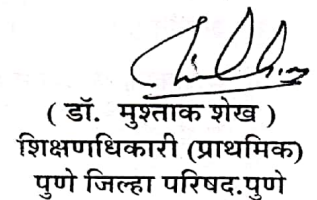 ( डॉ. मुश्ताक शेख )
शिक्षणधिकारी (प्राथमिक)
पुणे जिल्हा परिषद.पुणे